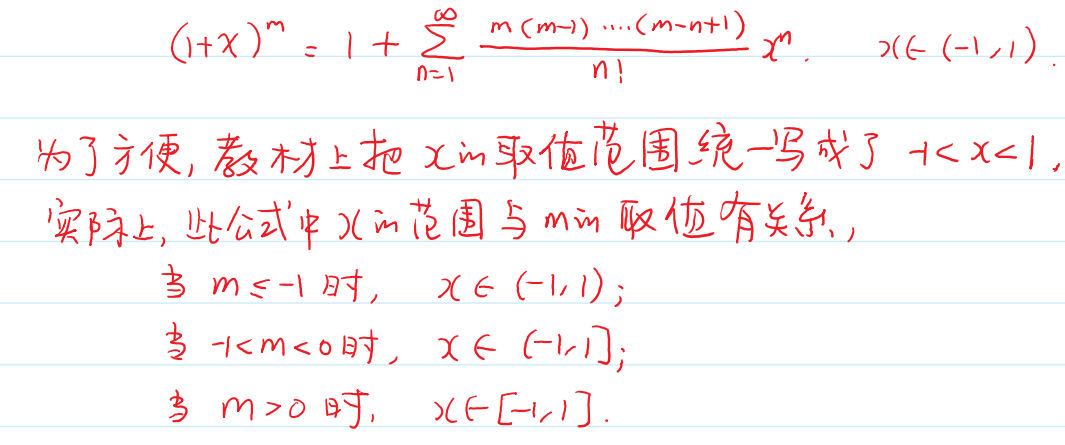 (1+x)^m = 1 + ∑_{n=1}^{∞} \frac{m(m-1)....(m-n+1)}{n!} x^n. x∈(-1,1).
为了方便,教材上把x的取值范围统一写成了 -1<x<1,
实际上,此公式中x的范围与m的取值有关系,
当 m≤-1时, x∈(-1,1);
当 -1<m<0时, x∈(-1,1];
当 m>0时, x∈[-1,1].